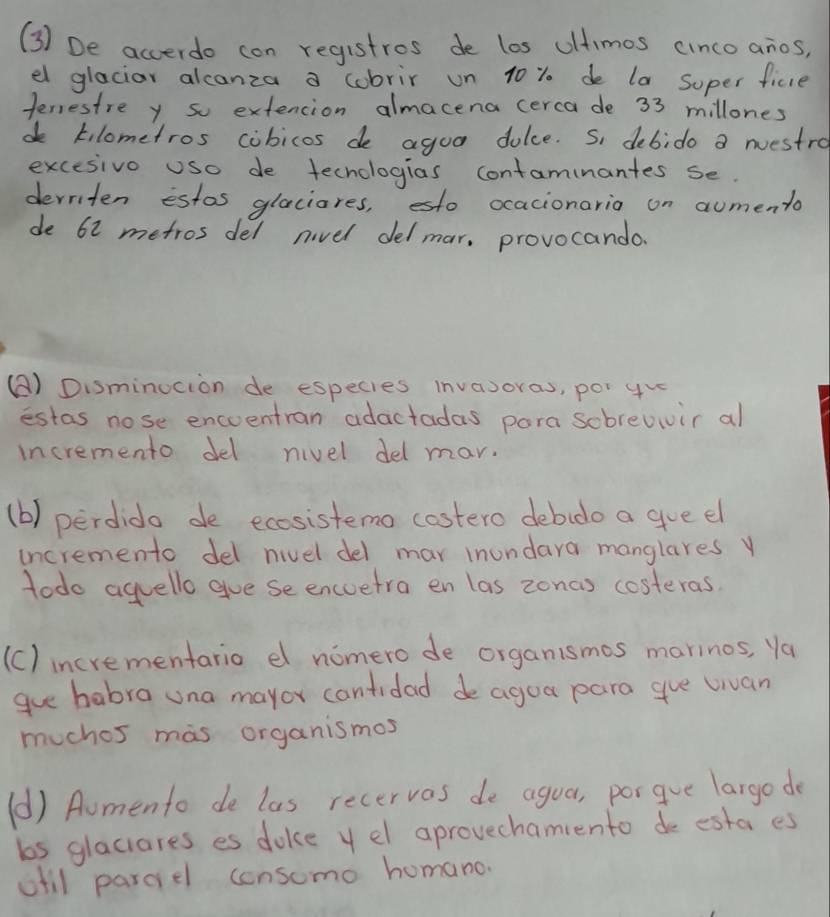 (3) De acverdo con registros de los ultimos cinco años,
el glaciar alcanza a cubrir un 10% de la super ficie
terrestre y su extencion almacena cerca de 33 millones
de kilometros cúbicos de agua dulce. Si debido a nuestro
excesivo uso de tecnologias contaminantes se.
derriten éstos glaciares, esto ocacionaria un aumento
de 62 metros del nivel del mar. provocando.
(a) Disminución de especies invasoras, por que
éstas no se encuentran adactadas para sobrevivir al
incremento del nivel del mar.
(b) pérdida de ecosistema costero debido a que el
incremento del nivel del mar inundara manglares y
todo aquello que se encuetra en las zonas costeras.
(c) incrementaria el número de organismos marinos, ya
que habra una mayor cantidad de agua para que vivan
muchos más organismos
(d) Aumento de las recervas de agua, por que largo de
los glaciares es dulce y el aprovechamiento de esta es
útil para el consumo humano.